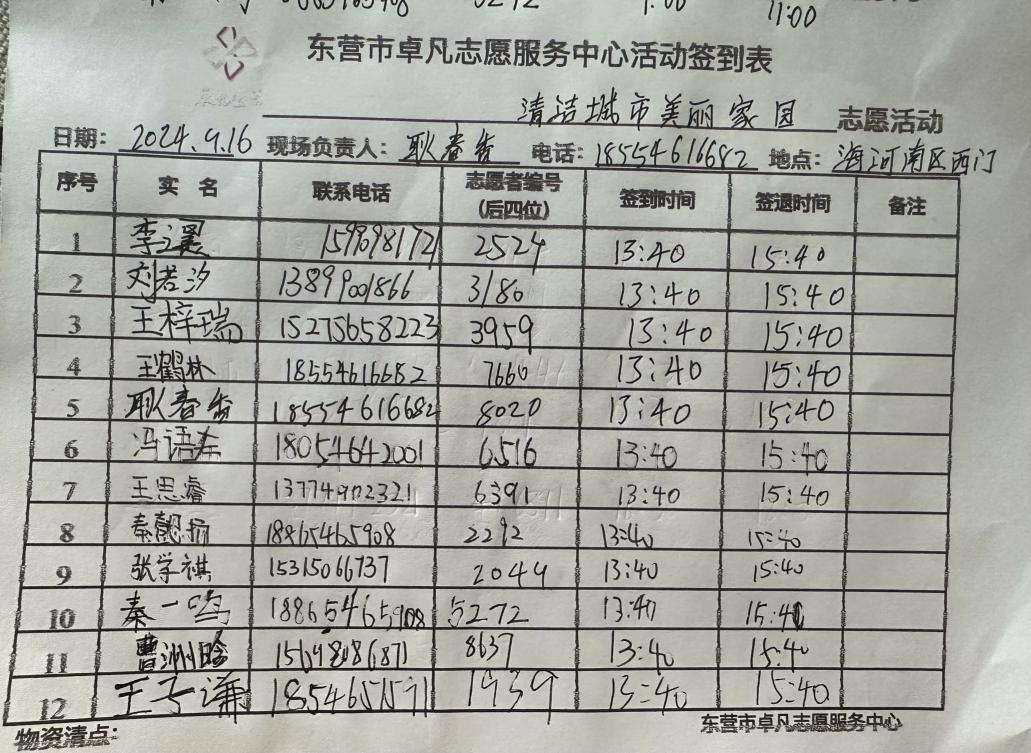 11:00
东营市卓凡志愿服务中心活动签到表
清洁城市美丽家园 志愿活动
日期: 2024.9.16 现场负责人: 耿春香 电话: 18554616682 地点: 海河南区西门
序号 实 名 联系电话 志愿者编号(后四位) 签到时间 签退时间 备注
1 2524 13:40 15:40
2 刘若汐 13899001866 3180 13:40 15:40
3 王梓瑞 15275658223 3959 13:40 15:40
4 王鹤林 18554616682 7660 13:40 15:40
5 耿春香 18554616682 8020 13:40 15:40
6 冯语 18054642001 6516 13:40 15:40
7 王思睿 13774902321 6391 13:40 15:40
8 秦懿 2292 13:40 15:40
9 张学祺 15315066737 2044 13:40 15:40
10 秦一鸣 18865465908 5272 13:40 15:40
11 曹洲晗 8637 13:40 15:40
12 王子谦 18546571591 1939 13:40 15:40
物资清点: 东营市卓凡志愿服务中心